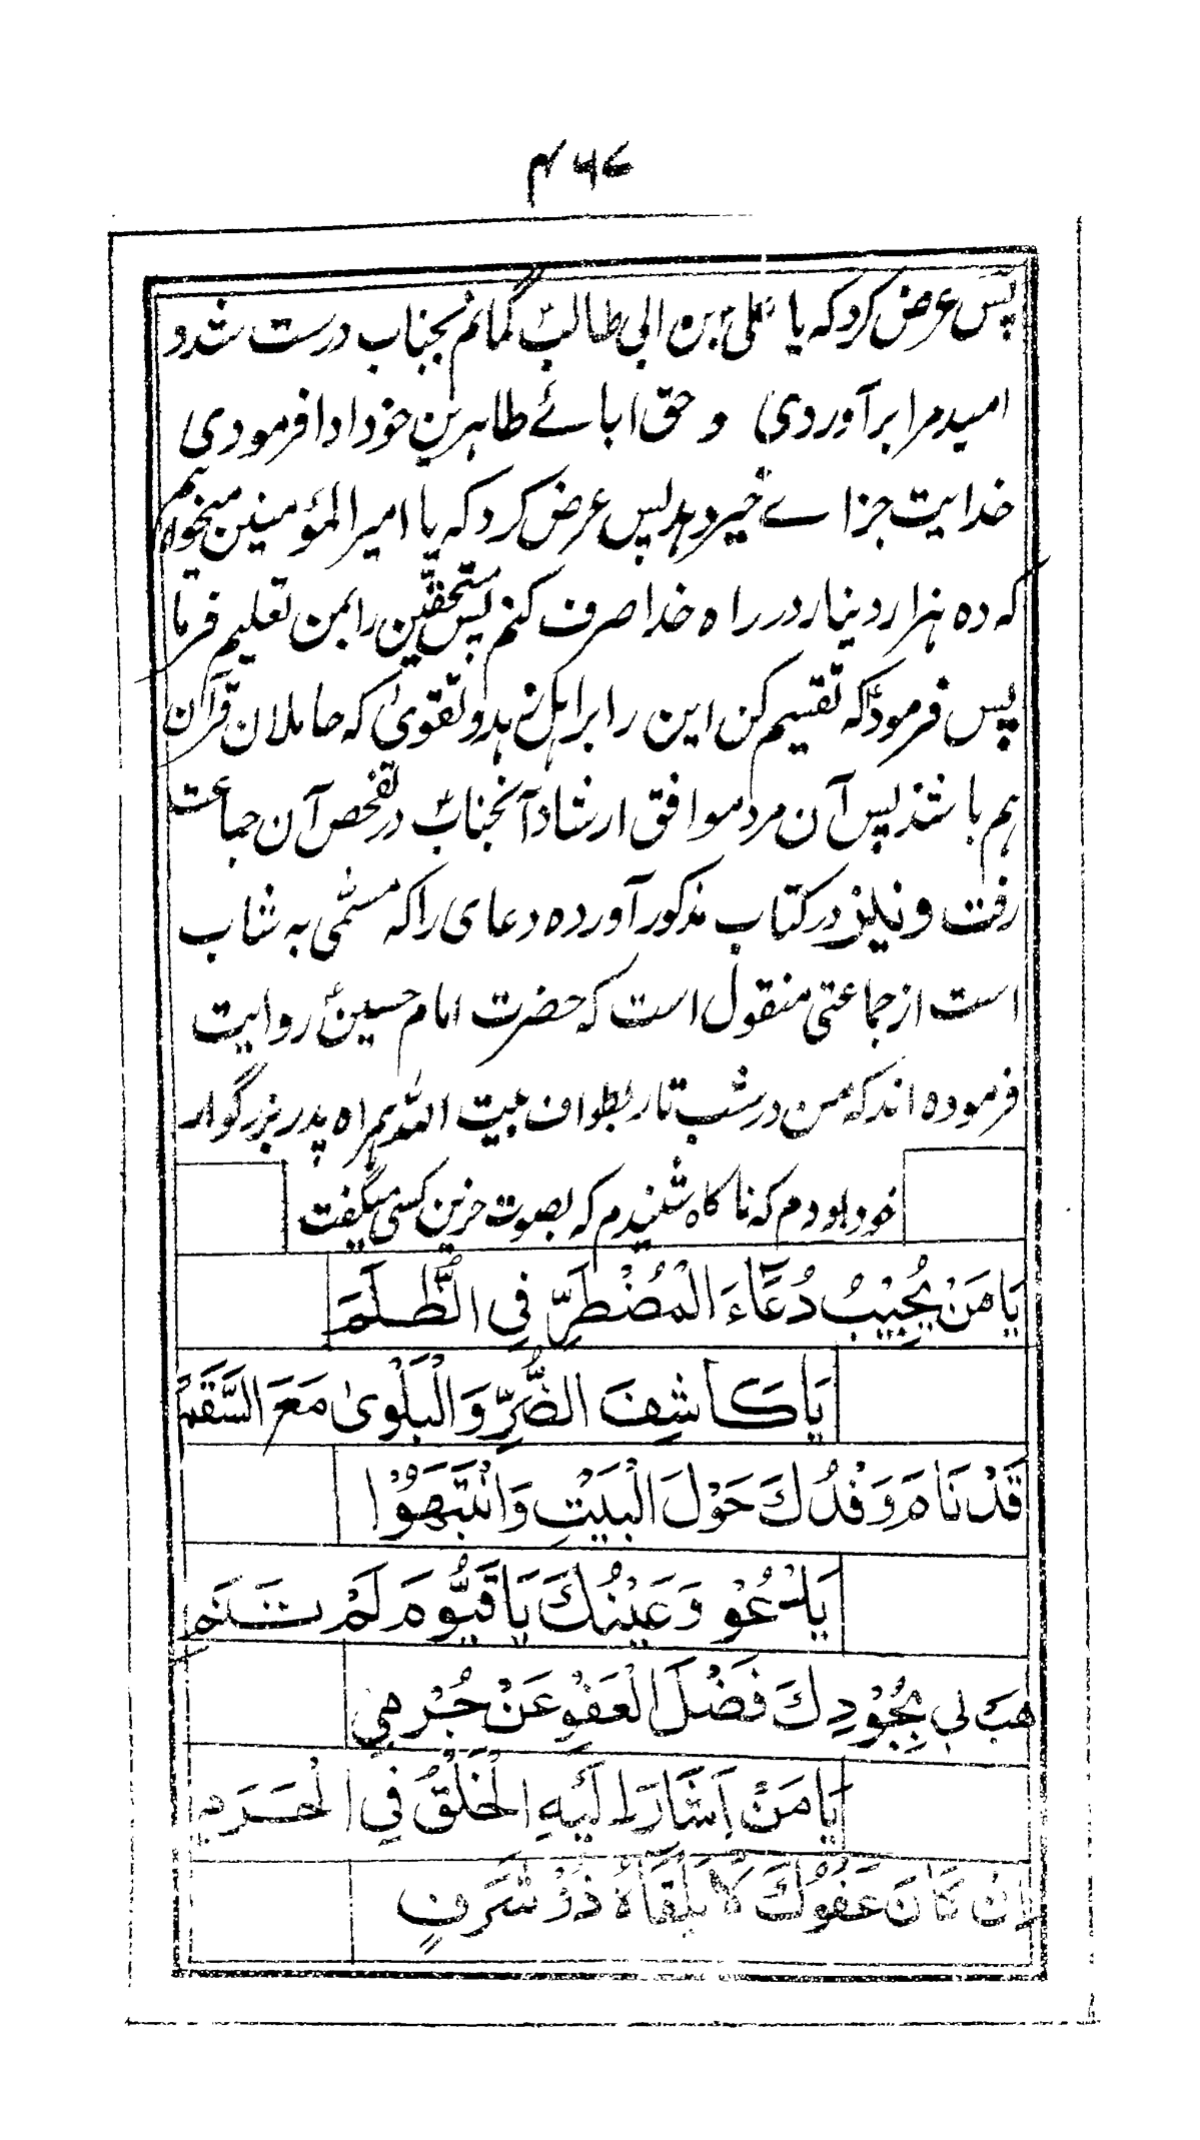 ۴۶۷
پس عرض کرد که یا علیؑ بن ابی طالبؑ گمانم بجناب درست شد و
امید مرا برآوردی و حق ابائے طاہرین خود ادا فرمودی
خدایت جزائے خیر دہد پس عرض کرد که یا امیرالمؤمنین میخواہم
که ده ہزار دینار در راه خدا صرف کنم پس مستحقین را بمن تعلیم فرما
پس فرمودؑ که تقسیم کن این را بر اہل زہد و تقویٰ که حاملان قرآن
ہم باشند پس آن مرد موافق ارشاد آنجنابؑ در تفحص آن جماعت
رفت و نیز در کتاب مذکور آورده دعای را که مسمّی به شاب
است از جماعتی منقول است که حضرت امام حسینؑ روایت
فرموده اند که من در شب تار بطواف بیت اللہ ہمراه پدر بزرگوار
خود بودم که ناگاه شنیدم که بصوت حزین کسی میگفت
يَا مَنْ يُجِيْبُ دُعَاءَ الْمُضْطَرِّ فِي الظُّلَمِ
يَا كَاشِفَ الضُّرِّ وَالْبَلْوىٰ مَعَ السَّقَمِ
قَدْ نَامَ وَفْدُكَ حَوْلَ الْبَيْتِ وَانْتَبَهُوْا
يَدْعُوْ وَعَيْنُكَ يَا قَيُّوْمُ لَمْ تَنَمِ
هَبْ لِي بِجُوْدِكَ فَضْلَ الْعَفْوِ عَنْ جُرْمِي
يَا مَنْ اَشَارَ اِلَيْهِ الْخَلْقُ فِي الْحَرَمِ
اِنْ كَانَ عَفْوُكَ لَا يَلْقَاهُ ذُوْ سَرَفٍ